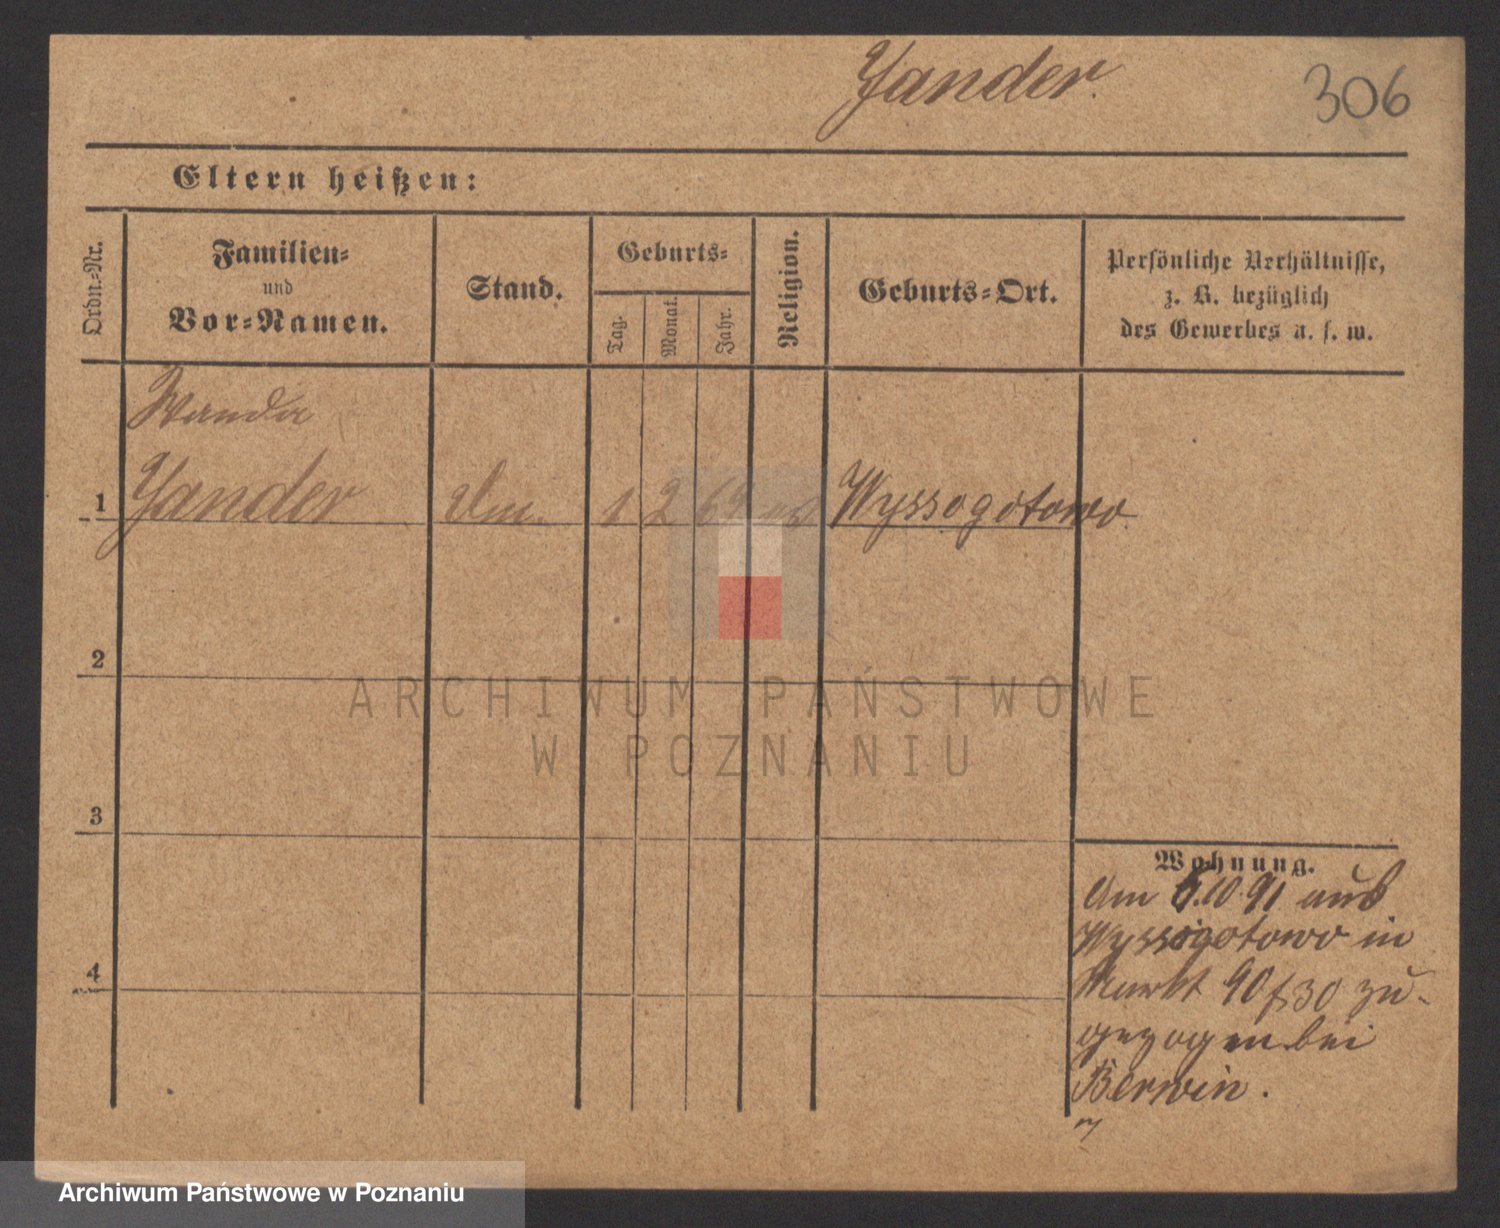 Yander.
306
Eltern heißen:
Ordn.-Nr.
Familien-
und
Vor-Namen.
Stand.
Geburts-
Tag.
Monat.
Jahr.
Religion.
Geburts-Ort.
Persönliche Verhältnisse,
z. B. bezüglich
des Gewerbes u. s. w.
Wanda
1 Yander 1 2 69 Wyssogotowo
2
ARCHIWUM PAŃSTWOWE
W POZNANIU
3
Wohnung.
Am 6.10.91 aus
Wyssogotowo in
Markt 90 f 30 zu-
gezogen bei
Berwin.
4
Archiwum Państwowe w Poznaniu